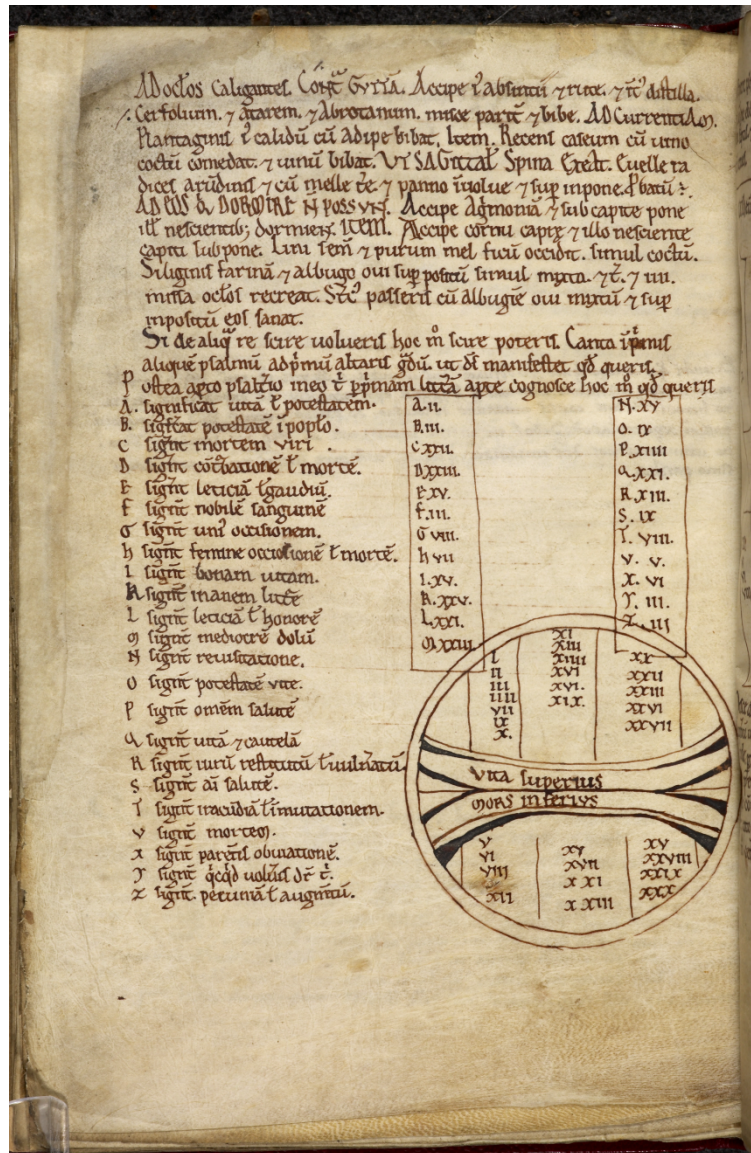 AD oclos Caligantes. Contͣ GVTTA. Accipe absintii ⁊ rute. distilla.
Cerfolium. ⁊ ⁊ Abrotanum. misce parit̄ ⁊ bibe. AD Currentiā
Plantaginis calidū cū Adipe bibat. Item. Recens caseum cū vino
coctū comedat. ⁊ uinū bibat. VT SAGITTAE Spina Evelle ra
dices arūdinis ⁊ cū melle ⁊ panno īuolue ⁊ sup inpone.
AD EOS Q DORMIRE N̄ POSSVNT. Accipe Agmoniā ⁊ sub capite pone
ill nescientib; dormient. ITEM. Accipe cornu capre ⁊ illo nesciente
capiti subpone. Lini sem̄ ⁊ purum mel ficū occidit. simul coctū.
Siliginis farinā ⁊ albugo oui sup positū simul mixta. ⁊ IIII.
missa oclos recreat. passeris cū albugīe oui mixtū ⁊ sup
inpositū eos sanat.
Si de aliq̄ re scire uolueris hoc m̊ scire poteris. Canta īprimis
aliquē psalmū adp̄mū altaris gͣdū. ut ds̄ manifestet qd̄ queris.
Postea apto psaltio meo p̄ p̄mam litt̄ā apte cognosce hoc m̊ qd̄ queris
A. significat uitā ł potestatem.
B. sigficat potestatē ī poplo.
C signit mortem viri.
D signit ł mortē.
E signit leticiā ł gaudiū.
F signit nobilē sanguinē
G signit uni᾽ occisionem.
h signit femine occisionē ł mortē.
I signit bonam uitam.
K signit inanem
L signit leticiā ł honorē
M signit mediocrē dolū
N signit reuisitatione.
O signit potestatē vite.
P signit omēm salutē
Q signit uitā ⁊ cautelā
R signit restitutū ł uulnatū
S signit aī salutē.
T signit iracūdiā ł īmutationem.
V signit mortem.
X signit parētis
Y signit qͥcqͥd uolūis
Z signit. ł augmtū.
A. II.
B. III.
C XXII.
D XXIII.
E XV.
F. III.
G VIII.
h VII
I. XV.
K. XXV.
L. XXI.
M XXIII
N. XV
O. IX
P. XIIII
Q. XXI.
R. XIII.
S. IX
T. VIII.
V. V.
X. VI
Y. III.
Z. III
I
II
III
IIII
VII
IX
X.
XI
XIII
XIIII
XVI
XVI.
XIX.
XX
XXII
XXIII
XXVI
XXVII
Vita superius
Mors inferius
V
VI
VIII
XII
XV
XVII
X XI
X XIII
XV
XXVIII
XXIX
XXX